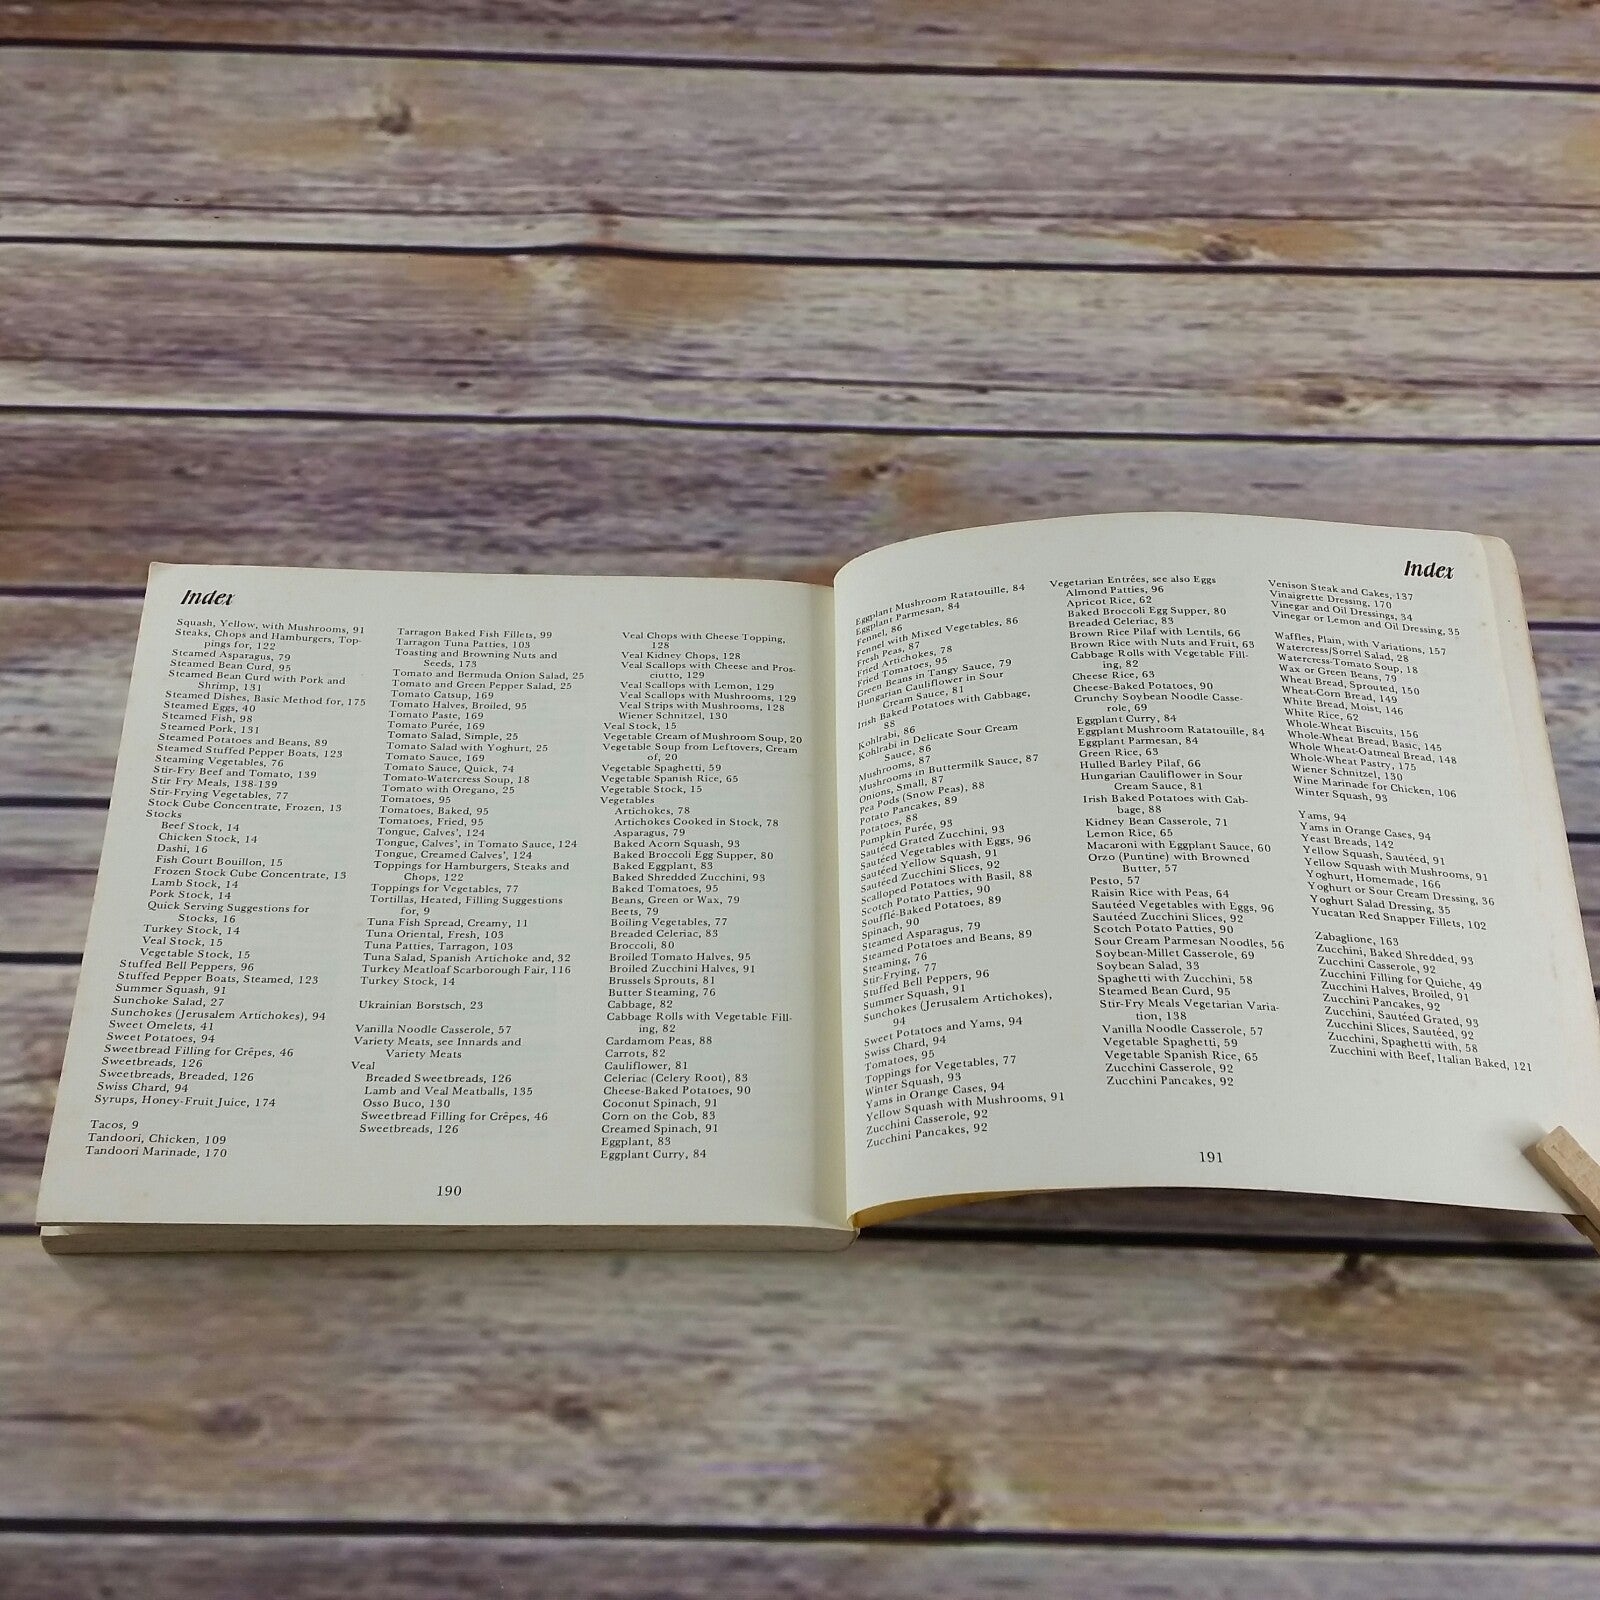 Index
Squash, Yellow, with Mushrooms, 91
Steaks, Chops and Hamburgers, Top-
pings for, 122
Steamed Asparagus, 79
Steamed Bean Curd, 95
Steamed Bean Curd with Pork and
Shrimp, 131
Steamed Dishes, Basic Method for, 175
Steamed Eggs, 40
Steamed Fish, 98
Steamed Pork, 131
Steamed Potatoes and Beans, 89
Steamed Stuffed Pepper Boats, 123
Steaming Vegetables, 76
Stir-Fry Beef and Tomato, 139
Stir Fry Meals, 138-139
Stir-Frying Vegetables, 77
Stock Cube Concentrate, Frozen, 13
Stocks
Beef Stock, 14
Chicken Stock, 14
Dashi, 16
Fish Court Bouillon, 15
Frozen Stock Cube Concentrate, 13
Lamb Stock, 14
Pork Stock, 14
Quick Serving Suggestions for
Stocks, 16
Turkey Stock, 14
Veal Stock, 15
Vegetable Stock, 15
Stuffed Bell Peppers, 96
Stuffed Pepper Boats, Steamed, 123
Summer Squash, 91
Sunchoke Salad, 27
Sunchokes (Jerusalem Artichokes), 94
Sweet Omelets, 41
Sweet Potatoes, 94
Sweetbread Filling for Crêpes, 46
Sweetbreads, 126
Sweetbreads, Breaded, 126
Swiss Chard, 94
Syrups, Honey-Fruit Juice, 174
Tacos, 9
Tandoori, Chicken, 109
Tandoori Marinade, 170
Tarragon Baked Fish Fillets, 99
Tarragon Tuna Patties, 103
Toasting and Browning Nuts and
Seeds, 173
Tomato and Bermuda Onion Salad, 25
Tomato and Green Pepper Salad, 25
Tomato Catsup, 169
Tomato Halves, Broiled, 95
Tomato Paste, 169
Tomato Purée, 169
Tomato Salad, Simple, 25
Tomato Salad with Yoghurt, 25
Tomato Sauce, 169
Tomato Sauce, Quick, 74
Tomato-Watercress Soup, 18
Tomato with Oregano, 25
Tomatoes, 95
Tomatoes, Baked, 95
Tomatoes, Fried, 95
Tongue, Calves', 124
Tongue, Calves', in Tomato Sauce, 124
Tongue, Creamed Calves', 124
Toppings for Hamburgers, Steaks and
Chops, 122
Toppings for Vegetables, 77
Tortillas, Heated, Filling Suggestions
for, 9
Tuna Fish Spread, Creamy, 11
Tuna Oriental, Fresh, 103
Tuna Patties, Tarragon, 103
Tuna Salad, Spanish Artichoke and, 32
Turkey Meatloaf Scarborough Fair, 116
Turkey Stock, 14
Ukrainian Borstsch, 23
Vanilla Noodle Casserole, 57
Variety Meats, see Innards and
Variety Meats
Veal
Breaded Sweetbreads, 126
Lamb and Veal Meatballs, 135
Osso Buco, 130
Sweetbread Filling for Crêpes, 46
Sweetbreads, 126
Veal Chops with Cheese Topping,
128
Veal Kidney Chops, 128
Veal Scallops with Cheese and Pros-
ciutto, 129
Veal Scallops with Lemon, 129
Veal Scallops with Mushrooms, 129
Veal Strips with Mushrooms, 128
Wiener Schnitzel, 130
Veal Stock, 15
Vegetable Cream of Mushroom Soup, 20
Vegetable Soup from Leftovers, Cream
of, 20
Vegetable Spaghetti, 59
Vegetable Spanish Rice, 65
Vegetable Stock, 15
Vegetables
Artichokes, 78
Artichokes Cooked in Stock, 78
Asparagus, 79
Baked Acorn Squash, 93
Baked Broccoli Egg Supper, 80
Baked Eggplant, 83
Baked Shredded Zucchini, 93
Baked Tomatoes, 95
Beans, Green or Wax, 79
Beets, 79
Boiling Vegetables, 77
Breaded Celeriac, 83
Broccoli, 80
Broiled Tomato Halves, 95
Broiled Zucchini Halves, 91
Brussels Sprouts, 81
Butter Steaming, 76
Cabbage, 82
Cabbage Rolls with Vegetable Fill-
ing, 82
Cardamom Peas, 88
Carrots, 82
Cauliflower, 81
Celeriac (Celery Root), 83
Cheese-Baked Potatoes, 90
Coconut Spinach, 91
Corn on the Cob, 83
Creamed Spinach, 91
Eggplant, 83
Eggplant Curry, 84
190
Index
Eggplant Mushroom Ratatouille, 84
Eggplant Parmesan, 84
Fennel, 86
Fennel with Mixed Vegetables, 86
Fresh Peas, 87
Fried Artichokes, 78
Fried Tomatoes, 95
Green Beans in Tangy Sauce, 79
Hungarian Cauliflower in Sour
Cream Sauce, 81
Irish Baked Potatoes with Cabbage,
88
Kohlrabi, 86
Kohlrabi in Delicate Sour Cream
Sauce, 86
Mushrooms, 87
Mushrooms in Buttermilk Sauce, 87
Onions, Small, 87
Pea Pods (Snow Peas), 88
Potato Pancakes, 89
Potatoes, 88
Pumpkin Purée, 93
Sautéed Grated Zucchini, 93
Sautéed Vegetables with Eggs, 96
Sautéed Yellow Squash, 91
Sautéed Zucchini Slices, 92
Scalloped Potatoes with Basil, 88
Scotch Potato Patties, 90
Soufflé-Baked Potatoes, 89
Spinach, 90
Steamed Asparagus, 79
Steamed Potatoes and Beans, 89
Steaming, 76
Stir-Frying, 77
Stuffed Bell Peppers, 96
Summer Squash, 91
Sunchokes (Jerusalem Artichokes),
94
Sweet Potatoes and Yams, 94
Swiss Chard, 94
Tomatoes, 95
Toppings for Vegetables, 77
Winter Squash, 93
Yams in Orange Cases, 94
Yellow Squash with Mushrooms, 91
Zucchini Casserole, 92
Zucchini Pancakes, 92
Vegetarian Entrées, see also Eggs
Almond Patties, 96
Apricot Rice, 62
Baked Broccoli Egg Supper, 80
Breaded Celeriac, 83
Brown Rice Pilaf with Lentils, 66
Brown Rice with Nuts and Fruit, 63
Cabbage Rolls with Vegetable Fill-
ing, 82
Cheese Rice, 63
Cheese-Baked Potatoes, 90
Crunchy Soybean Noodle Casse-
role, 69
Eggplant Curry, 84
Eggplant Mushroom Ratatouille, 84
Eggplant Parmesan, 84
Green Rice, 63
Hulled Barley Pilaf, 66
Hungarian Cauliflower in Sour
Cream Sauce, 81
Irish Baked Potatoes with Cab-
bage, 88
Kidney Bean Casserole, 71
Lemon Rice, 65
Macaroni with Eggplant Sauce, 60
Orzo (Puntine) with Browned
Butter, 57
Pesto, 57
Raisin Rice with Peas, 64
Sautéed Vegetables with Eggs, 96
Sautéed Zucchini Slices, 92
Scotch Potato Patties, 90
Sour Cream Parmesan Noodles, 56
Soybean-Millet Casserole, 69
Soybean Salad, 33
Spaghetti with Zucchini, 58
Steamed Bean Curd, 95
Stir-Fry Meals Vegetarian Varia-
tion, 138
Vanilla Noodle Casserole, 57
Vegetable Spaghetti, 59
Vegetable Spanish Rice, 65
Zucchini Casserole, 92
Zucchini Pancakes, 92
Venison Steak and Cakes, 137
Vinaigrette Dressing, 170
Vinegar and Oil Dressings, 34
Vinegar or Lemon and Oil Dressing, 35
Waffles, Plain, with Variations, 157
Watercress/Sorrel Salad, 28
Watercress-Tomato Soup, 18
Wax or Green Beans, 79
Wheat Bread, Sprouted, 150
Wheat-Corn Bread, 149
White Bread, Moist, 146
White Rice, 62
Whole-Wheat Biscuits, 156
Whole-Wheat Bread, Basic, 145
Whole Wheat-Oatmeal Bread, 148
Whole-Wheat Pastry, 175
Wiener Schnitzel, 130
Wine Marinade for Chicken, 106
Winter Squash, 93
Yams, 94
Yams in Orange Cases, 94
Yeast Breads, 142
Yellow Squash, Sautéed, 91
Yellow Squash with Mushrooms, 91
Yoghurt, Homemade, 166
Yoghurt or Sour Cream Dressing, 36
Yoghurt Salad Dressing, 35
Yucatan Red Snapper Fillets, 102
Zabaglione, 163
Zucchini, Baked Shredded, 93
Zucchini Casserole, 92
Zucchini Filling for Quiche, 49
Zucchini Halves, Broiled, 91
Zucchini Pancakes, 92
Zucchini, Sautéed Grated, 93
Zucchini Slices, Sautéed, 92
Zucchini, Spaghetti with, 58
Zucchini with Beef, Italian Baked, 121
191